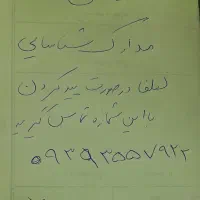 مدارک شناسایی
لطفا در صورت پیدا کردن
با این شماره تماس گیرید
۰۹۳۹۳۵۵۷۹۲۲